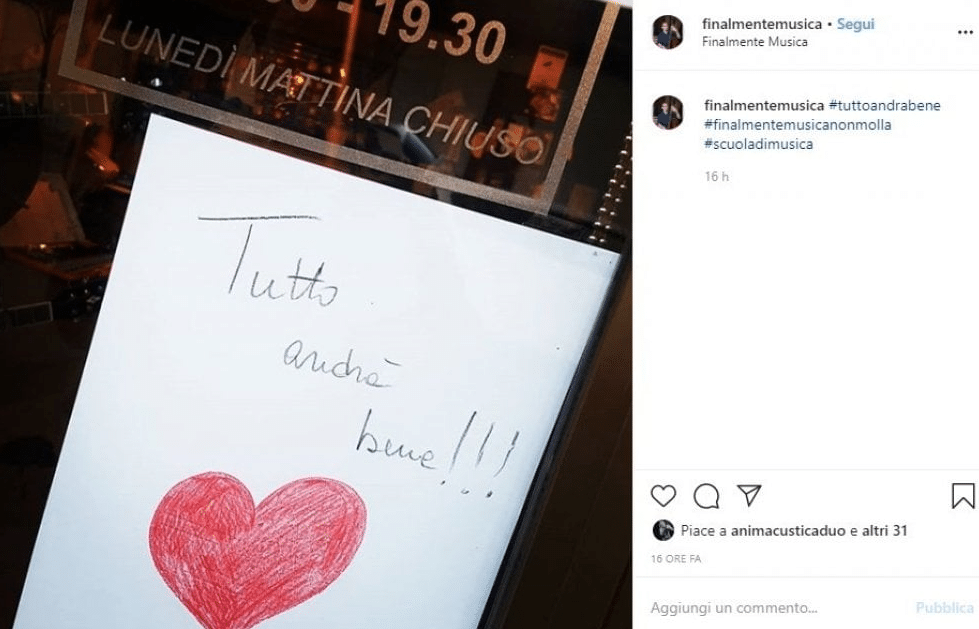 - 19.30
LUNEDÌ MATTINA CHIUSO
Tutto
andrà
bene!!!
finalmentemusica • Segui
Finalmente Musica
finalmentemusica #tuttoandrabene
#finalmentemusicanonmolla
#scuoladimusica
16 h
Piace a animacusticaduo e altri 31
16 ORE FA
Aggiungi un commento...
Pubblica